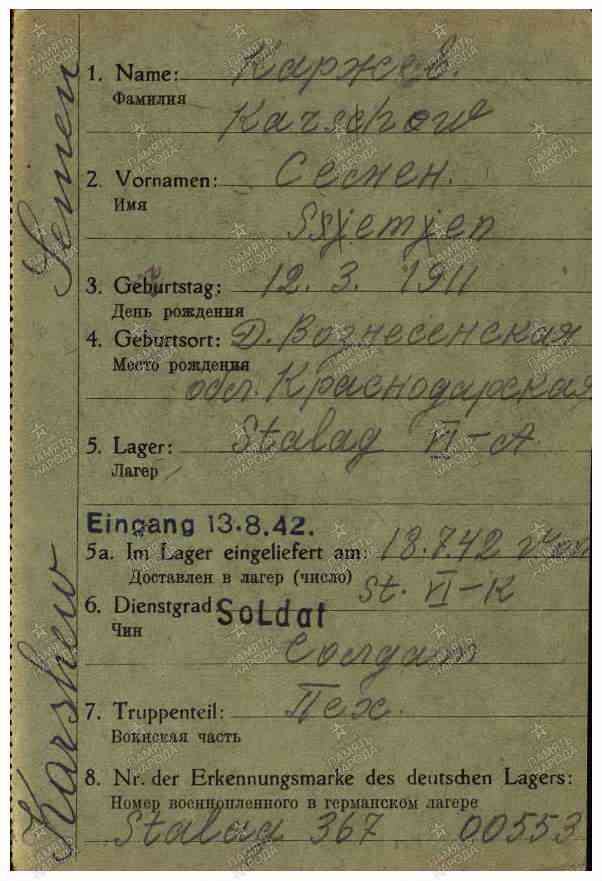 1. Name: Каржев.
Фамилия
Karschow
2. Vornamen: Семен.
Имя
Ssjemjen
3. Geburtstag: 12. 3. 1911
День рождения
4. Geburtsort: Д. Вознесенская
Место рождения
обл. Краснодарская
5. Lager: Stalag VI-A
Лагер
Eingang 13.8.42.
5a. Im Lager eingeliefert am: 18.7.42 von
Доставлен в лагер (число) St. VI-K
6. Dienstgrad Soldat
Чин
Солдат
7. Truppenteil: Пех.
Воинская часть
8. Nr. der Erkennungsmarke des deutschen Lagers:
Номер военнопленного в германском лагере
Stalag 367 00553
Karshew Semen
ПАМЯТЬ НАРОДА